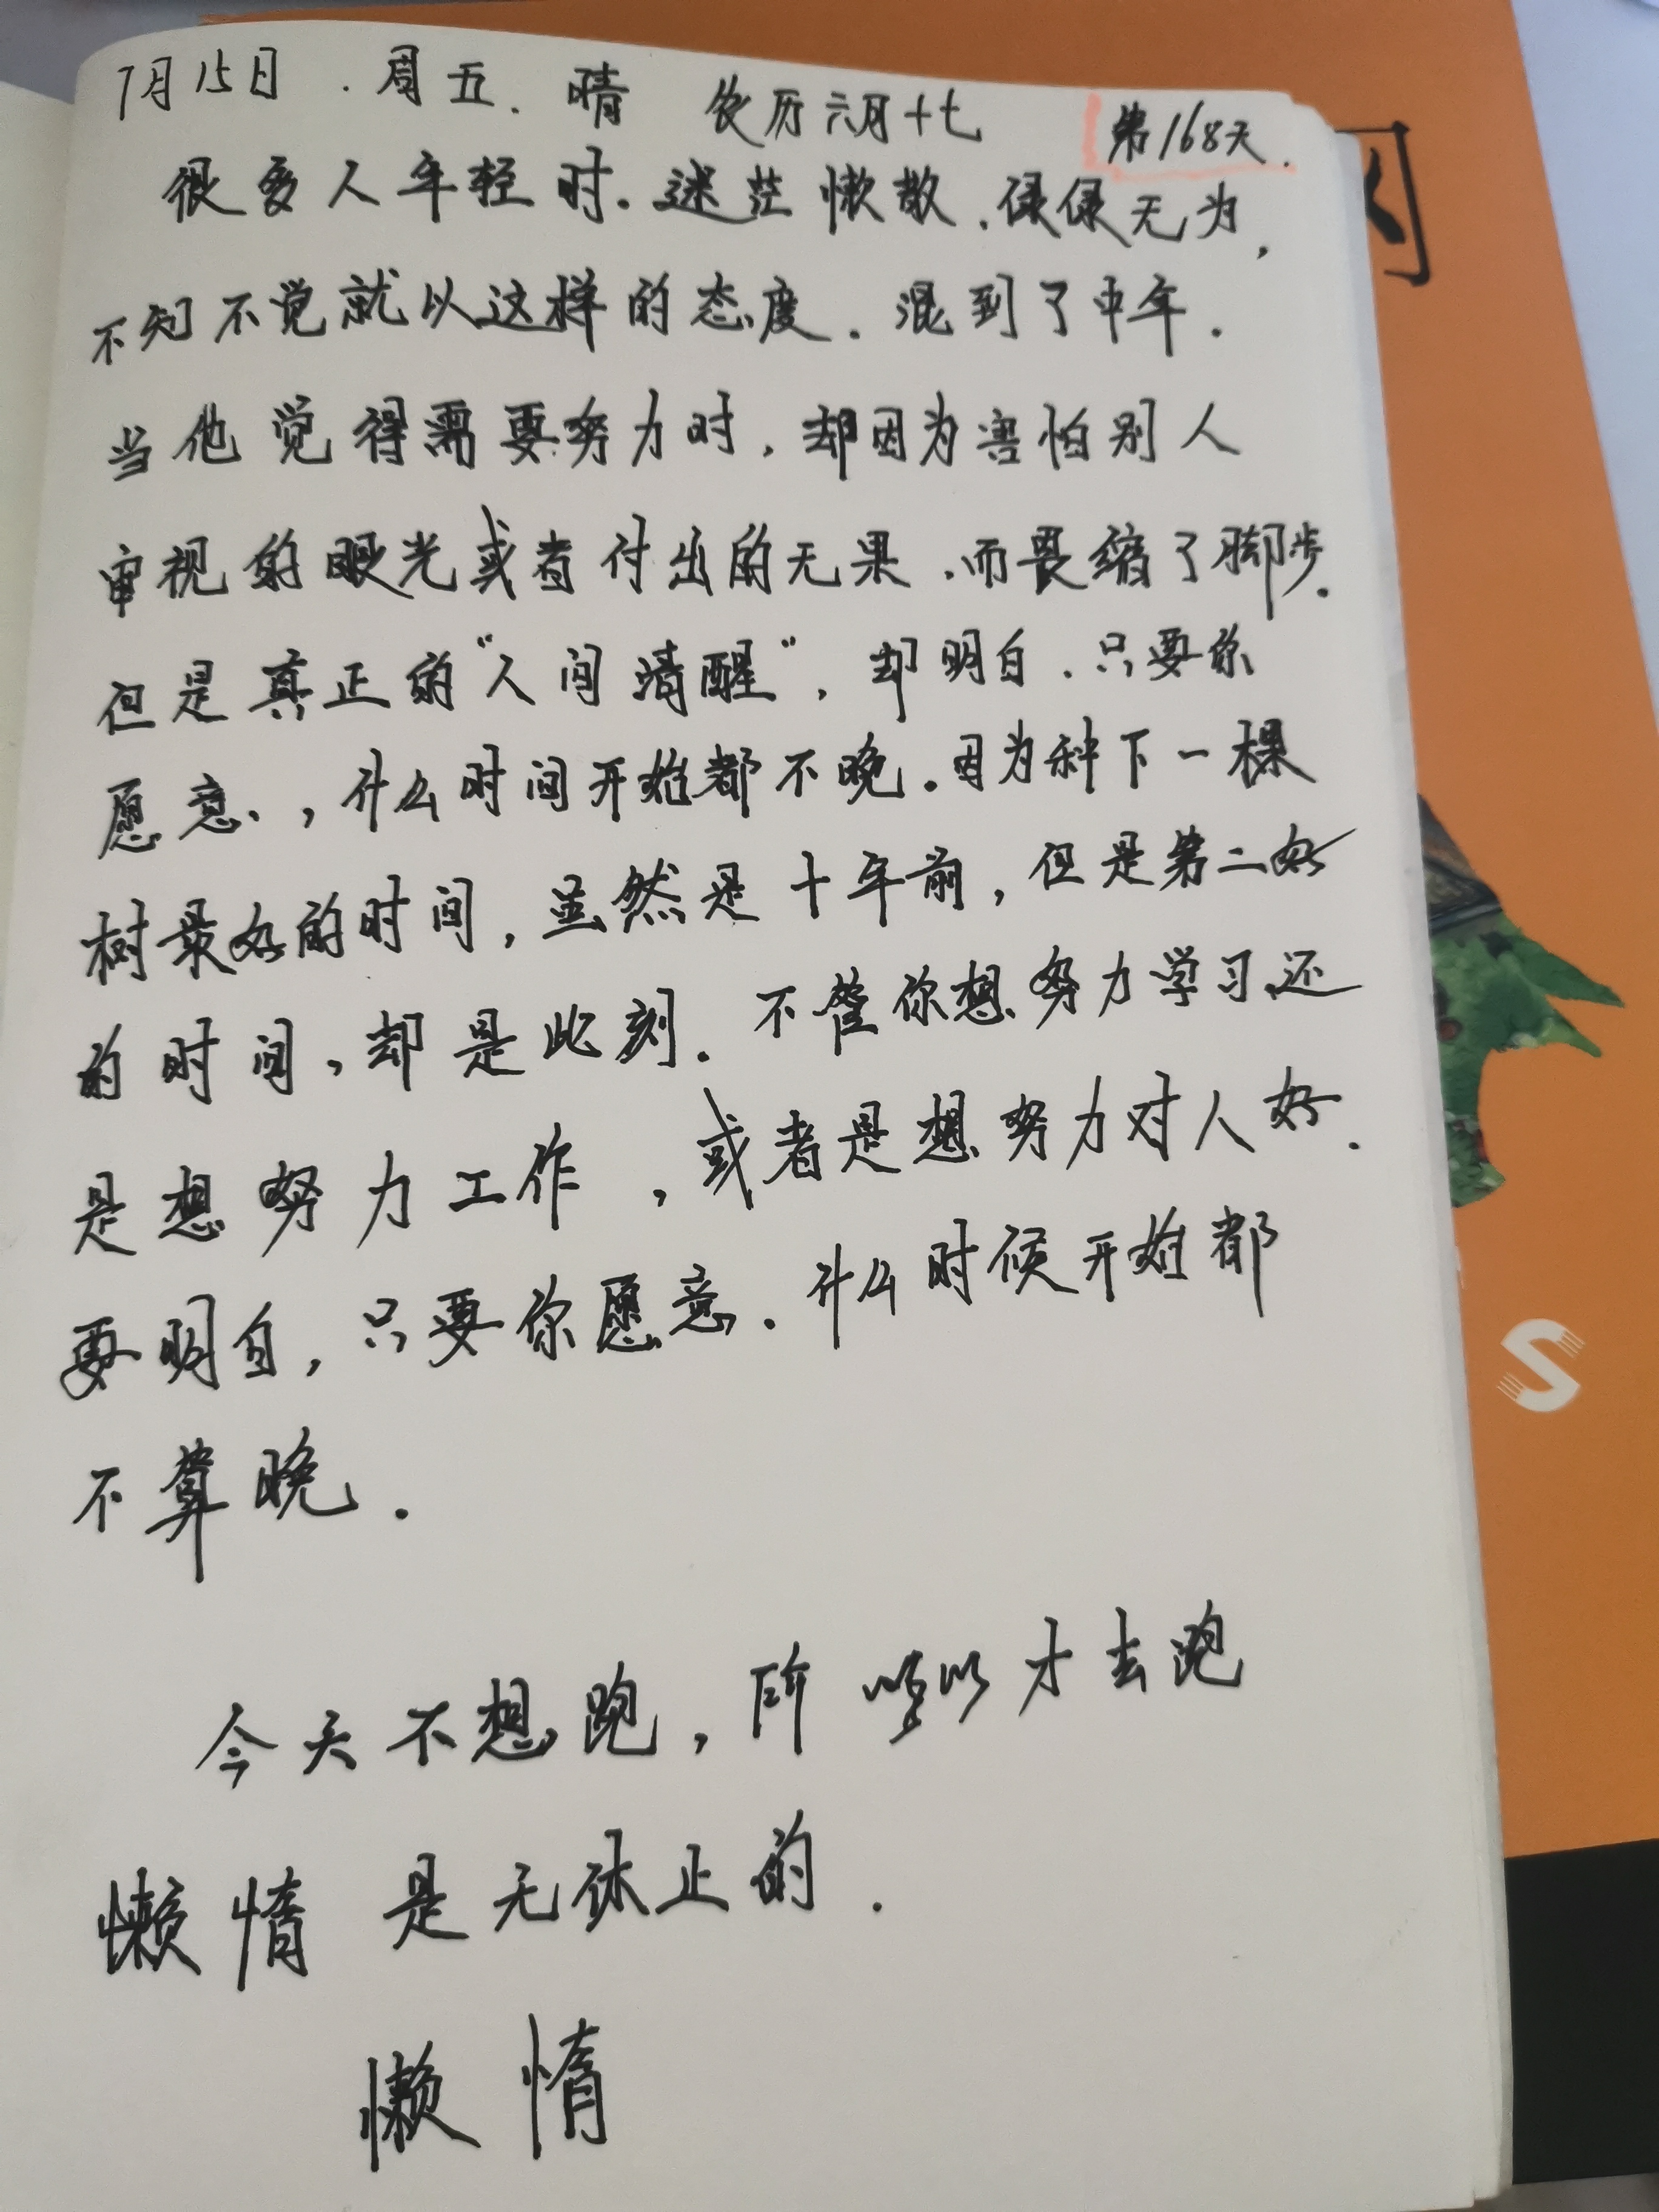 7月15日.周五.晴 农历六月十七 第168天.
很多人年轻时.迷茫懒散.碌碌无为,
不知不觉就以这样的态度.混到了中年.
当他觉得需要努力时,却因为害怕别人
审视的眼光或者付出的无果.而畏缩了脚步.
但是真正的“人间清醒”,却明白.只要你
愿意,什么时间开始都不晚.因为种下一棵
树最好的时间,虽然是十年前,但是第二好
的时间,却是此刻.不管你想努力学习还
是想努力工作,或者是想努力对人好.
要明白,只要你愿意.什么时候开始都
不算晚.
今天不想跑,所以才去跑
懒惰是无休止的.
懒惰
S